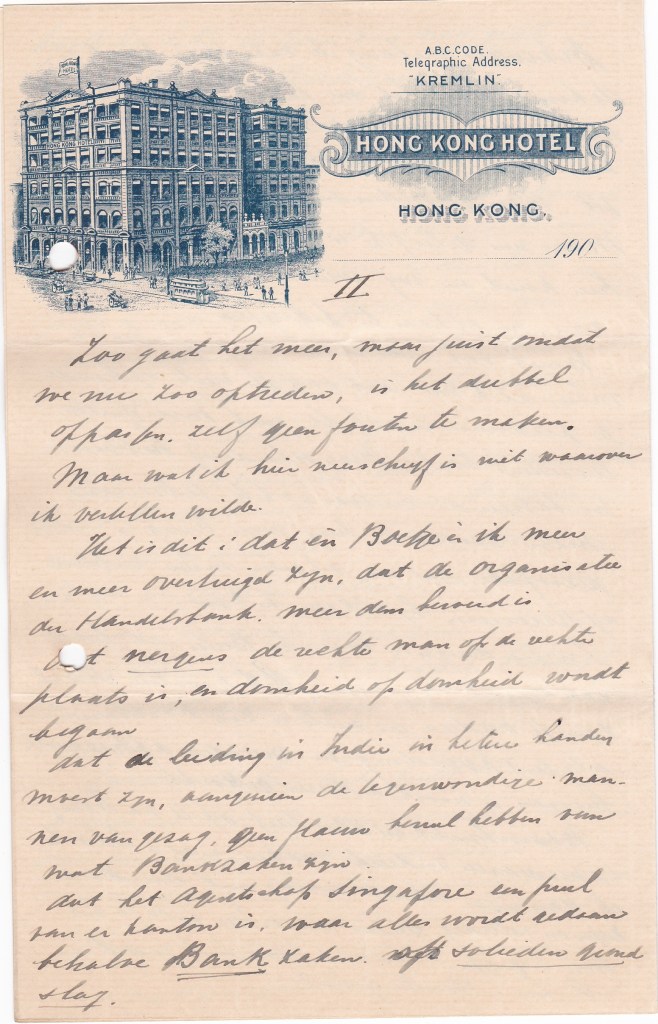 HONG KONG HOTEL
A.B.C. CODE.
Telegraphic Address.
"KREMLIN".
HONG KONG HOTEL
HONG KONG.
190
II
Zoo gaat het meer, maar juist omdat
we nu zoo optreden, is het dubbel
oppassen. zelf geen fouten te maken.
Maar wat ik hier neerschryf is niet waarover
ik vertellen wilde.
Het is dit: dat èn Boetje èn ik meer
en meer overtuigd zyn, dat de organisatie
der Handelsbank. meer dan beroerd is
dat nergens de rechte man op de rechte
plaats is, en domheid op domheid wordt
begaan
dat de leiding in Indie in betere handen
moest zyn, aangezien de tegenwoordige man-
nen van gezag, geen flauw benul hebben van
wat Bankzaken zyn.
dat het Agentschap Singapore een
van er kantoor is, waar alles wordt gedaan
behalve Bank zaken. soliden grond
slag.